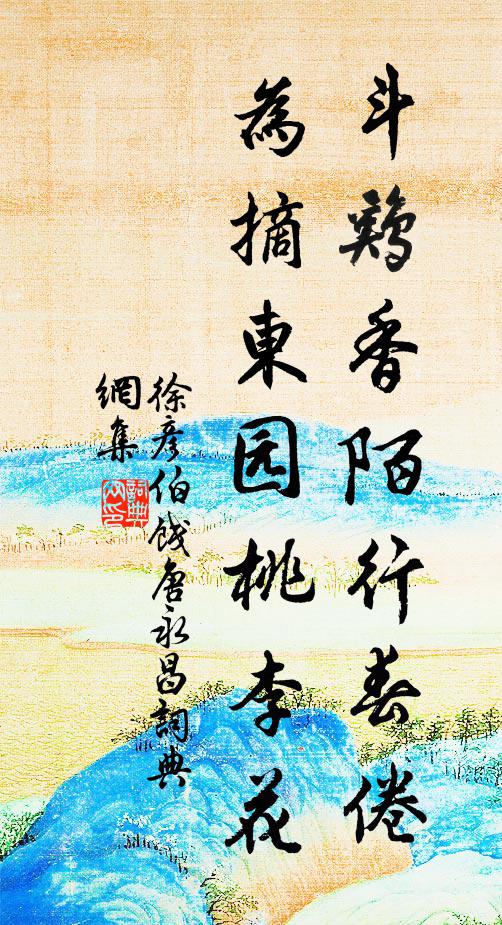 斗鷄香陌行春倦
為摘東园桃李花
徐彦伯饯唐永昌詞典
網集
詞典